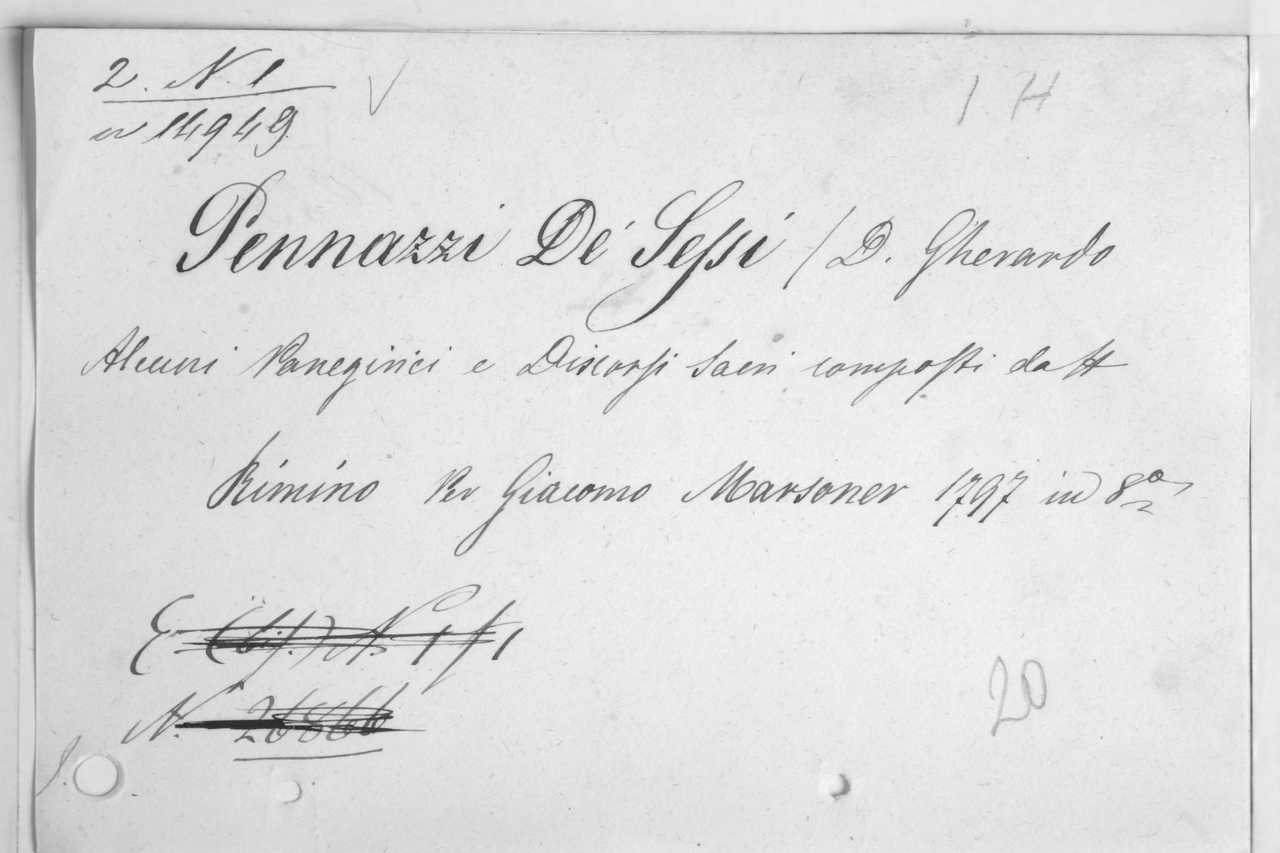 2. N. 1
14949
1 H
Pennazzi De' Sessi / D. Gherardo
Alcuni Panegirici e Discorsi Sacri composti da H
Rimino Per Giacomo Marsoner 1797 in 8º
E N. 1 f 1
N. 26866
20